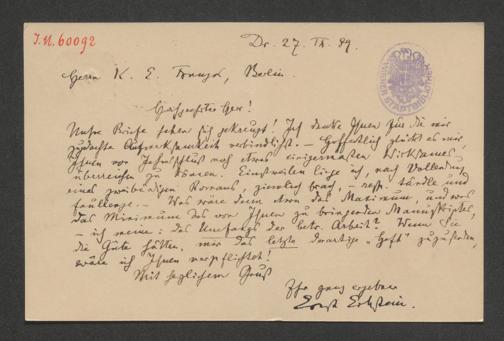 J.N. 60092
Dr. 27. IX. 89.
Herrn K. E. Franzos, Berlin.
Hochgeehrter Herr!
Unsre Briefe haben sich gekreuzt! Ich danke Ihnen für die mir
zugedachte Aufmerksamkeit verbindlichst. – Hoffentlich glückt es mir,
Ihnen vor Jahresschluß noch etwas einigermaßen Wirksames
überreichen zu können. Einstweilen liege ich, nach Vollendung
eines zweibändigen Romans, ziemlich brach, – resp. tändle und
faullenze. – Was wäre denn etwa das Maximum, und was
das Minimum des von Ihnen zu bringenden Manuskriptes,
– ich meine: des Umfangs der betr. Arbeit? Wenn Sie
die Güte hätten, mir das letzte derartige „Heft“ zuzusenden,
wäre ich Ihnen verpflichtet!
Mit herzlichem Gruß
Ihr ganz ergebener
Ernst Eckstein.